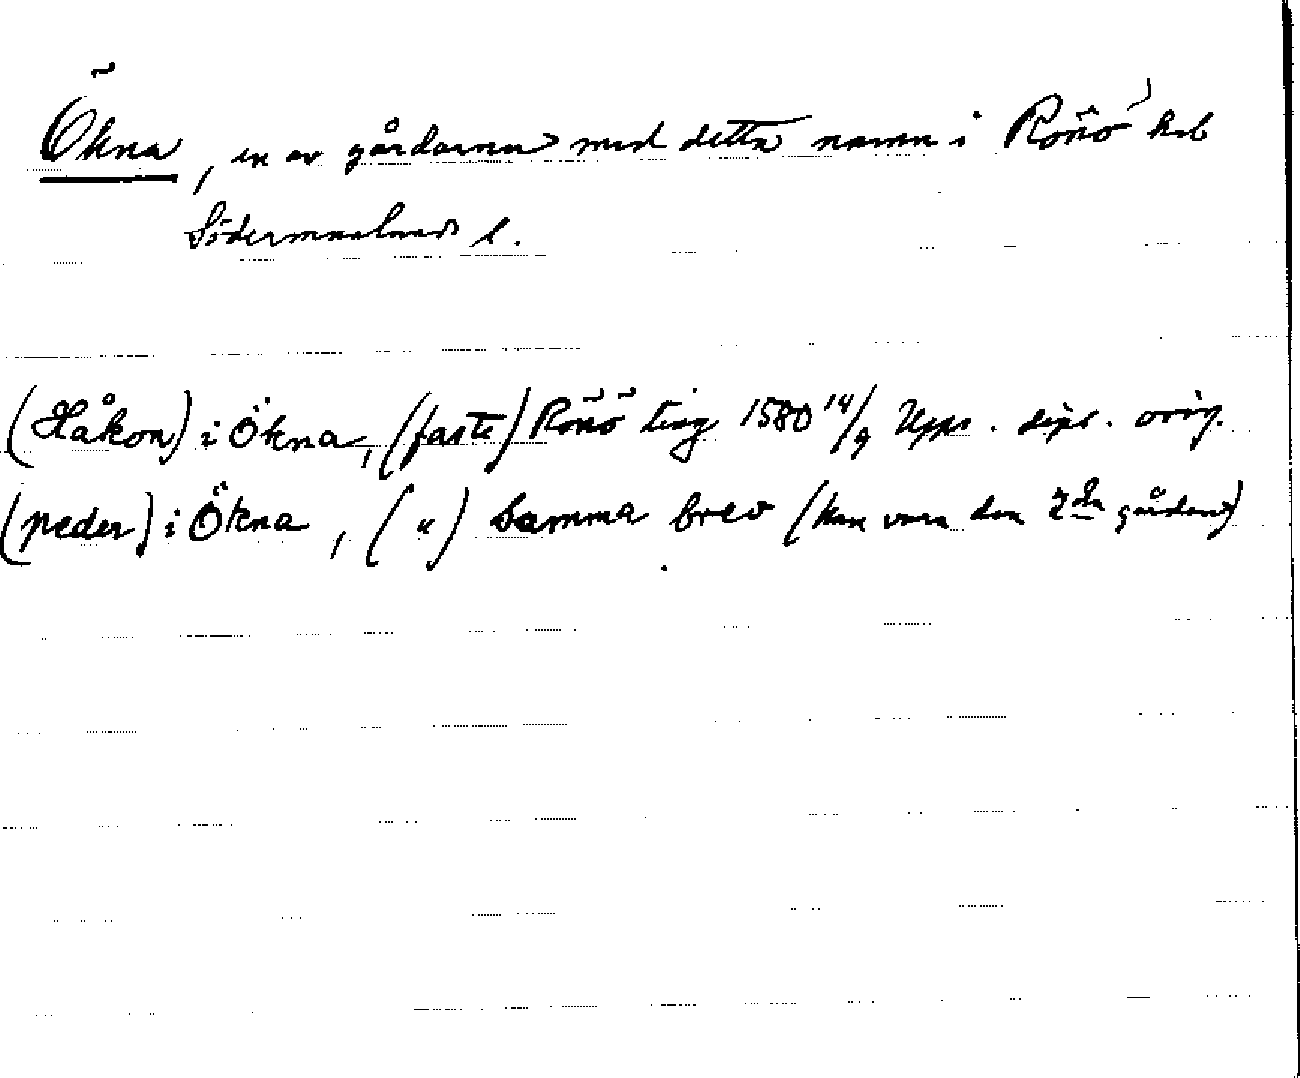 Ökna, en av gårdarna med detta namn i Rönö hd
Södermanlands l.
(Håkon) i Ökna, (faste) Rönö ting 1580 14/9 Upps. dipl. orig.
(peder) i Ökna, (") samma brev (kan vara den 2dra gården)